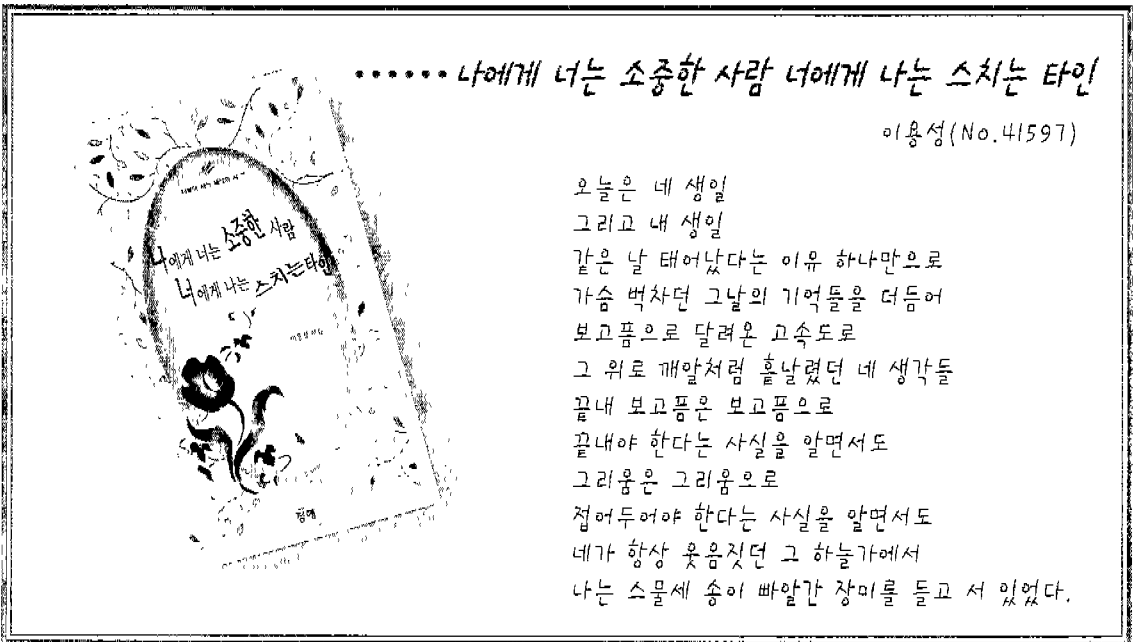 ······ 나에게 너는 소중한 사람 너에게 나는 스치는 타인
이용성(No.41597)
나에게 너는 소중한 사람
너에게 나는 스치는 타인
오늘은 네 생일
그리고 내 생일
같은 날 태어났다는 이유 하나만으로
가슴 벅차던 그날의 기억들을 더듬어
보고픔으로 달려온 고속도로
그 위로 깨알처럼 흩날렸던 네 생각들
끝내 보고픔은 보고픔으로
끝내야 한다는 사실을 알면서도
그리움은 그리움으로
접어두어야 한다는 사실을 알면서도
네가 항상 웃음짓던 그 하늘가에서
나는 스물세 송이 빠알간 장미를 들고 서 있었다.